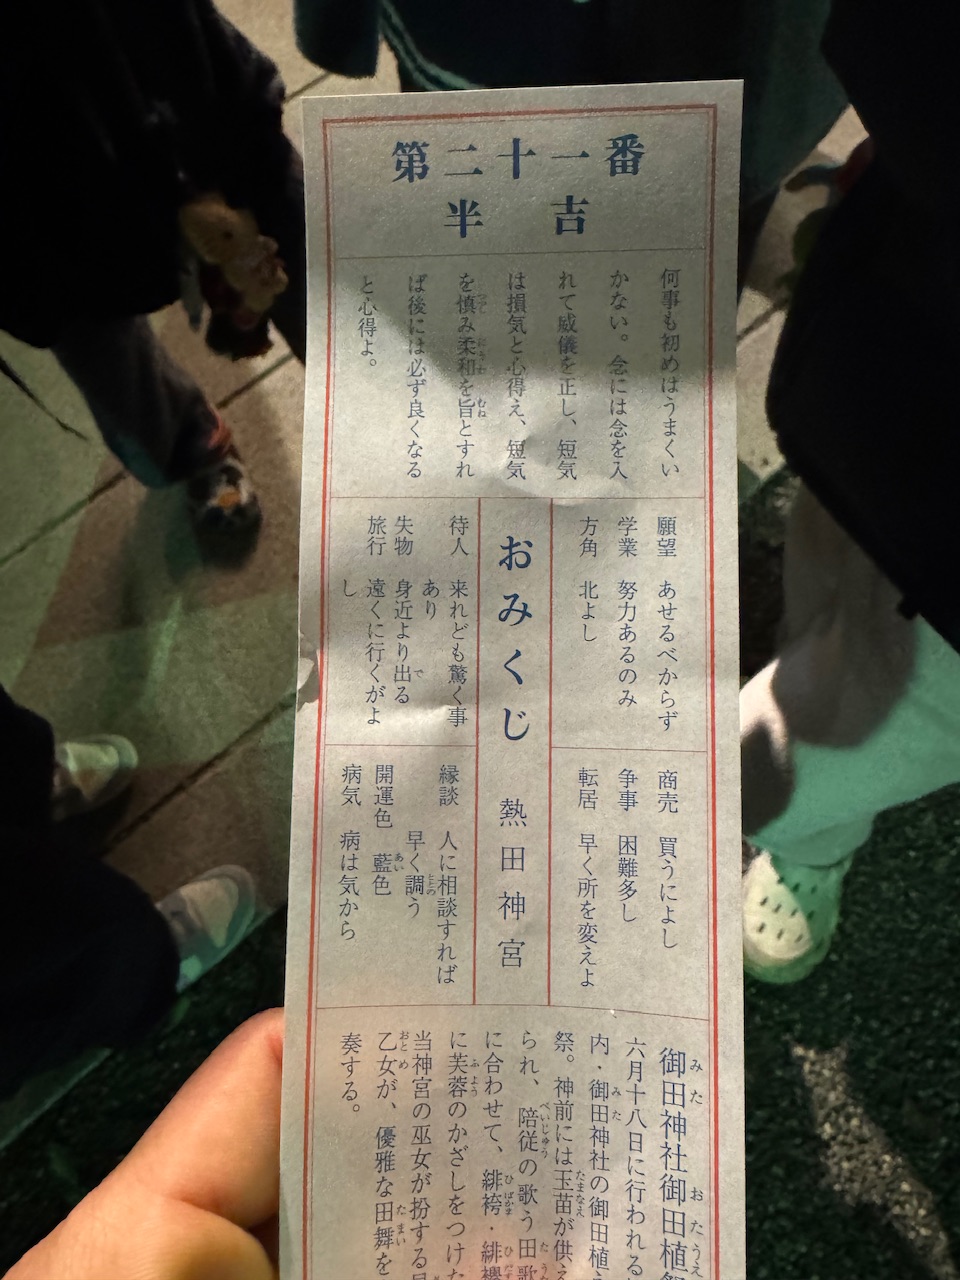 第二十一番
半吉
何事も初めはうまくい
かない。念には念を入
れて威儀を正し、短気
は損気と心得え、短気
を慎み柔和を旨とすれ
ば後には必ず良くなる
と心得よ。
願望 あせるべからず
学業 努力あるのみ
方角 北よし
商売 買うによし
争事 困難多し
転居 早く所を変えよ
おみくじ 熱田神宮
待人 来れども驚く事
あり
失物 身近より出る
旅行 遠くに行くがよ
し
縁談 人に相談すれば
早く調う
開運色 藍色
病気 病は気から
御田神社御田植祭
六月十八日に行われる
内・御田神社の御田植
祭。神前には玉苗が供え
られ、陪従の歌う田歌
に合わせて、緋袴・緋襷
に芙蓉のかざしをつけた
当神宮の巫女が扮する早
乙女が、優雅な田舞を
奏する。